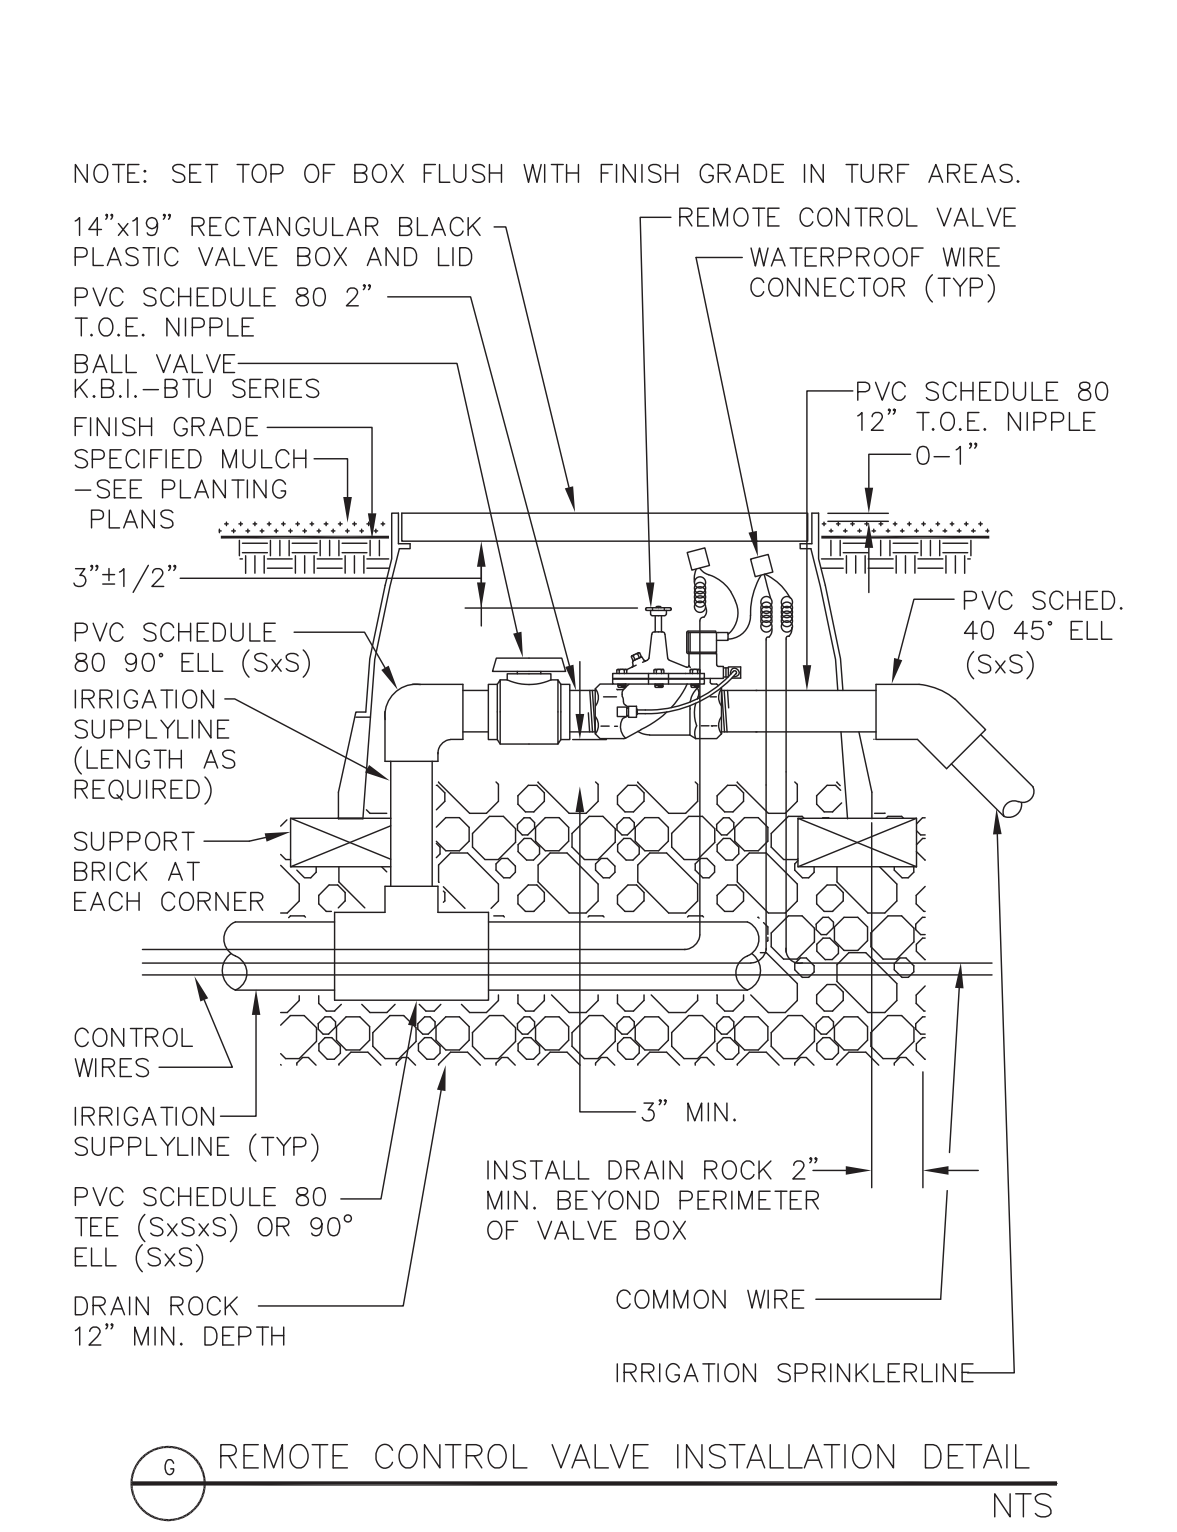 NOTE: SET TOP OF BOX FLUSH WITH FINISH GRADE IN TURF AREAS.
14”x19” RECTANGULAR BLACK
PLASTIC VALVE BOX AND LID
PVC SCHEDULE 80 2”
T.O.E. NIPPLE
BALL VALVE
K.B.I.–BTU SERIES
FINISH GRADE
SPECIFIED MULCH
–SEE PLANTING
PLANS
3”±1/2”
PVC SCHEDULE
80 90° ELL (SxS)
IRRIGATION
SUPPLYLINE
(LENGTH AS
REQUIRED)
SUPPORT
BRICK AT
EACH CORNER
CONTROL
WIRES
IRRIGATION
SUPPLYLINE (TYP)
PVC SCHEDULE 80
TEE (SxSxS) OR 90°
ELL (SxS)
DRAIN ROCK
12” MIN. DEPTH
REMOTE CONTROL VALVE
WATERPROOF WIRE
CONNECTOR (TYP)
PVC SCHEDULE 80
12” T.O.E. NIPPLE
0–1”
PVC SCHED.
40 45° ELL
(SxS)
3” MIN.
INSTALL DRAIN ROCK 2”
MIN. BEYOND PERIMETER
OF VALVE BOX
COMMON WIRE
IRRIGATION SPRINKLERLINE
G
REMOTE CONTROL VALVE INSTALLATION DETAIL
NTS